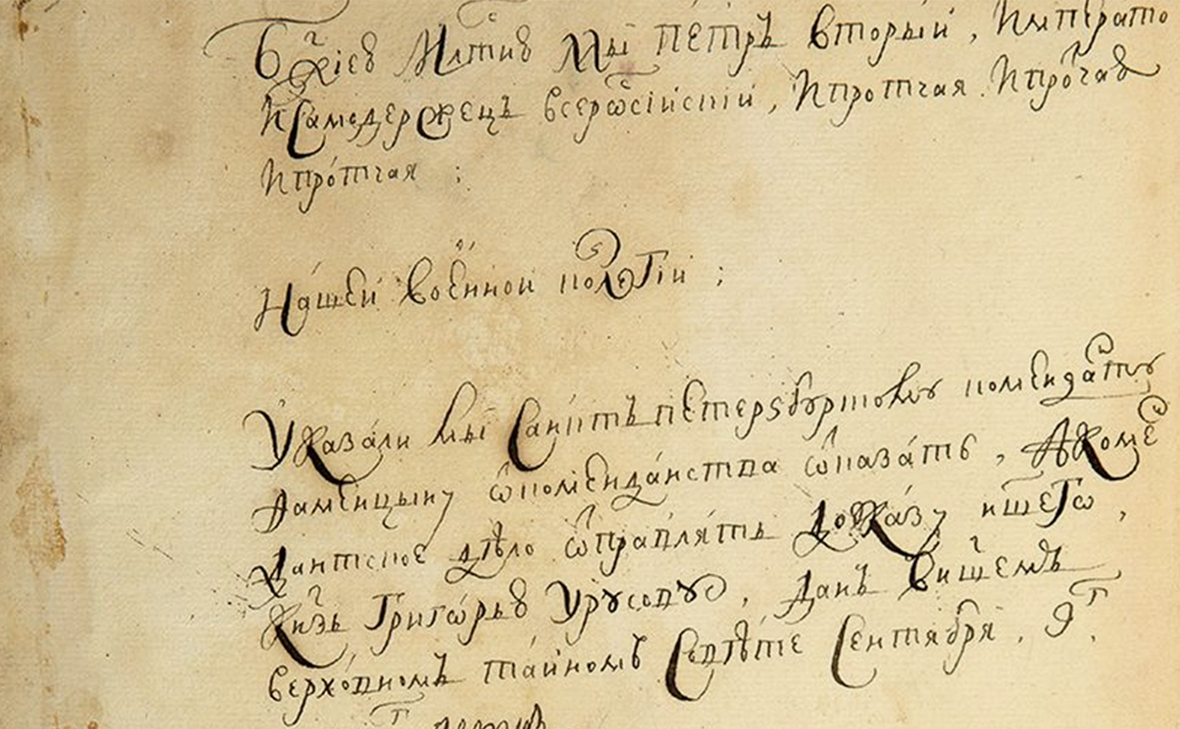 Бжїею Млтию Мы пётръ вторыи, Императо
И Самодержецъ всерѡсіискіи, Ипротчая. Ипрочая
Ипротчая :
Нашеи военнои колегіи ;
Указали мы Санктъ петерзбургскому коменданту
ѡкоменданства ѡказать, Акомен
дантское дѣло ѡправлять до указу нашегѡ,
Кнзь Григорью Урусову, данъ внашемъ
верховномъ таиномъ Совѣте Сентября, 9г.